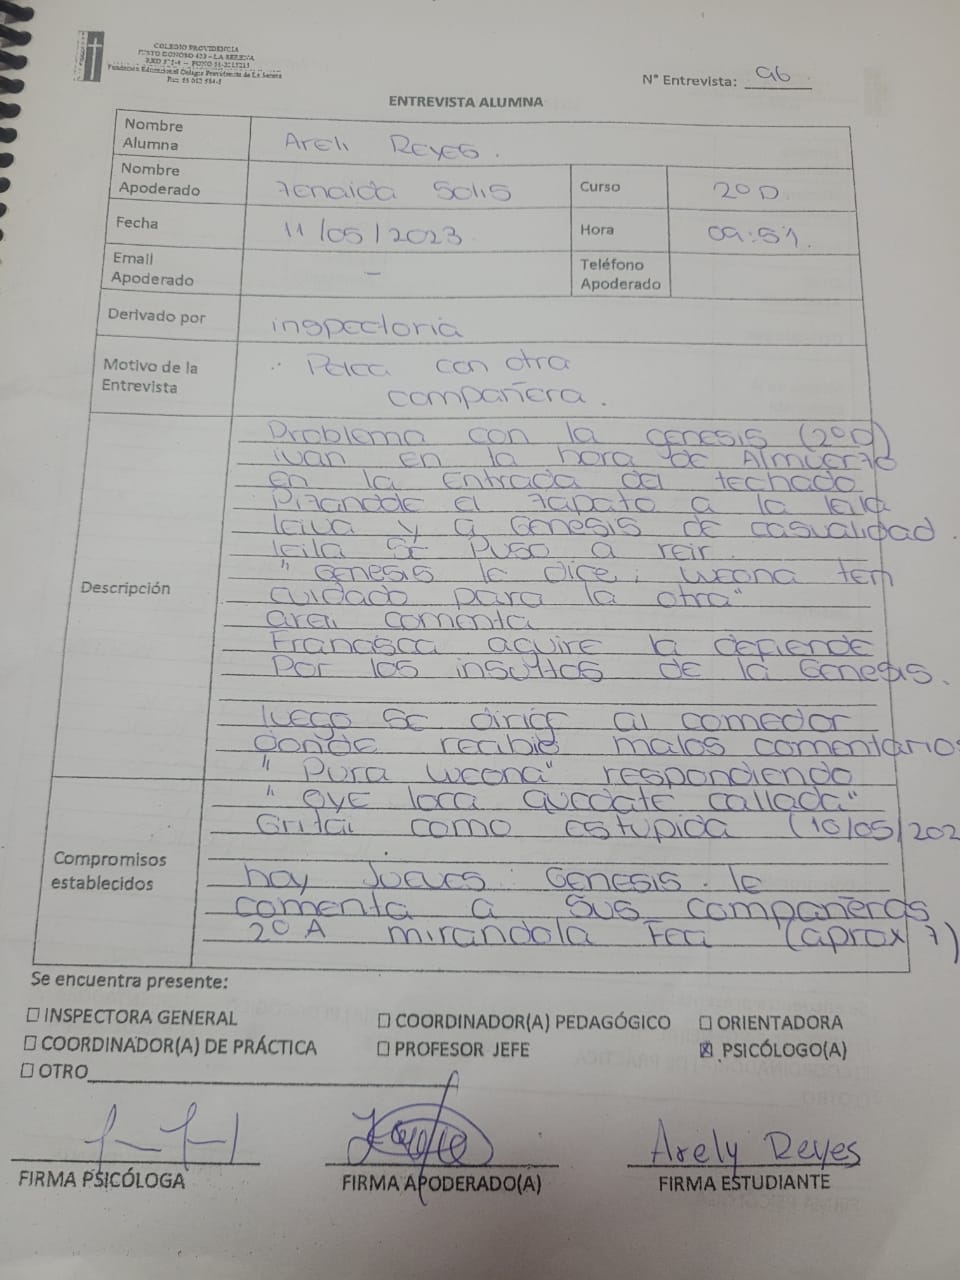 COLEGIO PROVIDENCIA
JUSTO DONOSO 420 - LA SERENA
Fundación Educacional Colegio Providencia de La Serena
N° Entrevista: 96
ENTREVISTA ALUMNA
Nombre Alumna Areli Reyes.
Nombre Apoderado Zenaida Solis Curso 2°D.
Fecha 11/05/2023 Hora 09:51.
Email Apoderado - Teléfono Apoderado
Derivado por inspectoria
Motivo de la Entrevista Pelea con otra
compañera.
Descripción
Problema con la Genesis (2°D)
ivan en la hora de Almuerzo
en la Entrada del techado
Pizandole el zapato a la leila
leiva y a Genesis de casualidad.
leila se puso a reir.
" Genesis le dice: weona ten
cuidado para la otra"
areli comenta
Francisca aguire la defiende
Por los insultos de la Genesis.
luego se dirige al comedor
donde recibie malos comentarios
" Pura weona" respondiendo
" oye loca quedate callada"
Gritai como estupida (10/05/202
Compromisos establecidos
hoy Jueves: Genesis le
comenta a sus compañeras
2°A mirandola Fea (aprox 7)
Se encuentra presente:
☐ INSPECTORA GENERAL ☐ COORDINADOR(A) PEDAGÓGICO ☐ ORIENTADORA
☐ COORDINADOR(A) DE PRÁCTICA ☐ PROFESOR JEFE ☒ PSICÓLOGO(A)
☐ OTRO
Arely Reyes
FIRMA PSICÓLOGA FIRMA APODERADO(A) FIRMA ESTUDIANTE